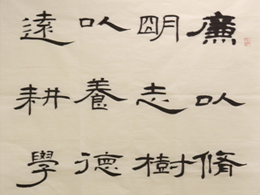 廉以脩
朙志樹
以養德
遠耕學